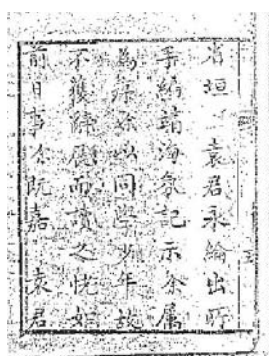 省垣袁君永綸出所
手編靖海氛記示余屬
為序余以同學少年故
不獲辭展而讀之恍如
前日事余既嘉袁君